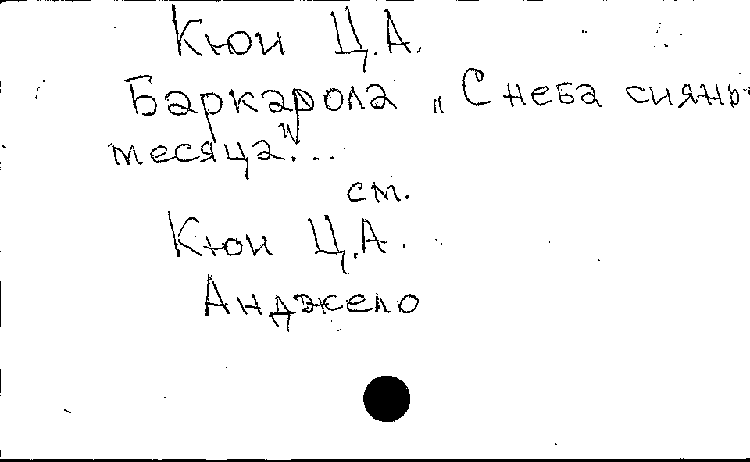 Кюи Ц.А.
Баркарола „С неба
месяца"...
см.
Кюи Ц.А.
Анджело